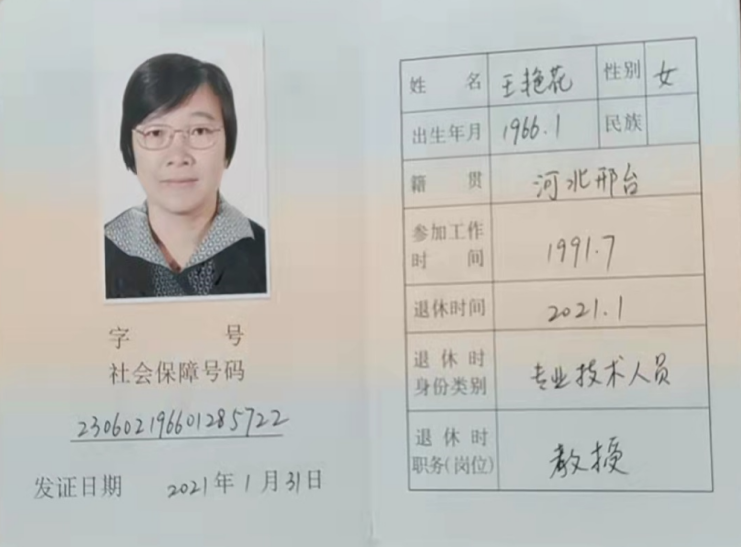 字 号
社会保障号码
230602196601285722
发证日期 2021年1月31日
姓 名 王艳花 性别 女
出生年月 1966.1 民族
籍 贯 河北邢台
参加工作
时 间 1991.7
退休时间 2021.1
退 休 时
身份类别 专业技术人员
退 休 时
职务(岗位) 教授